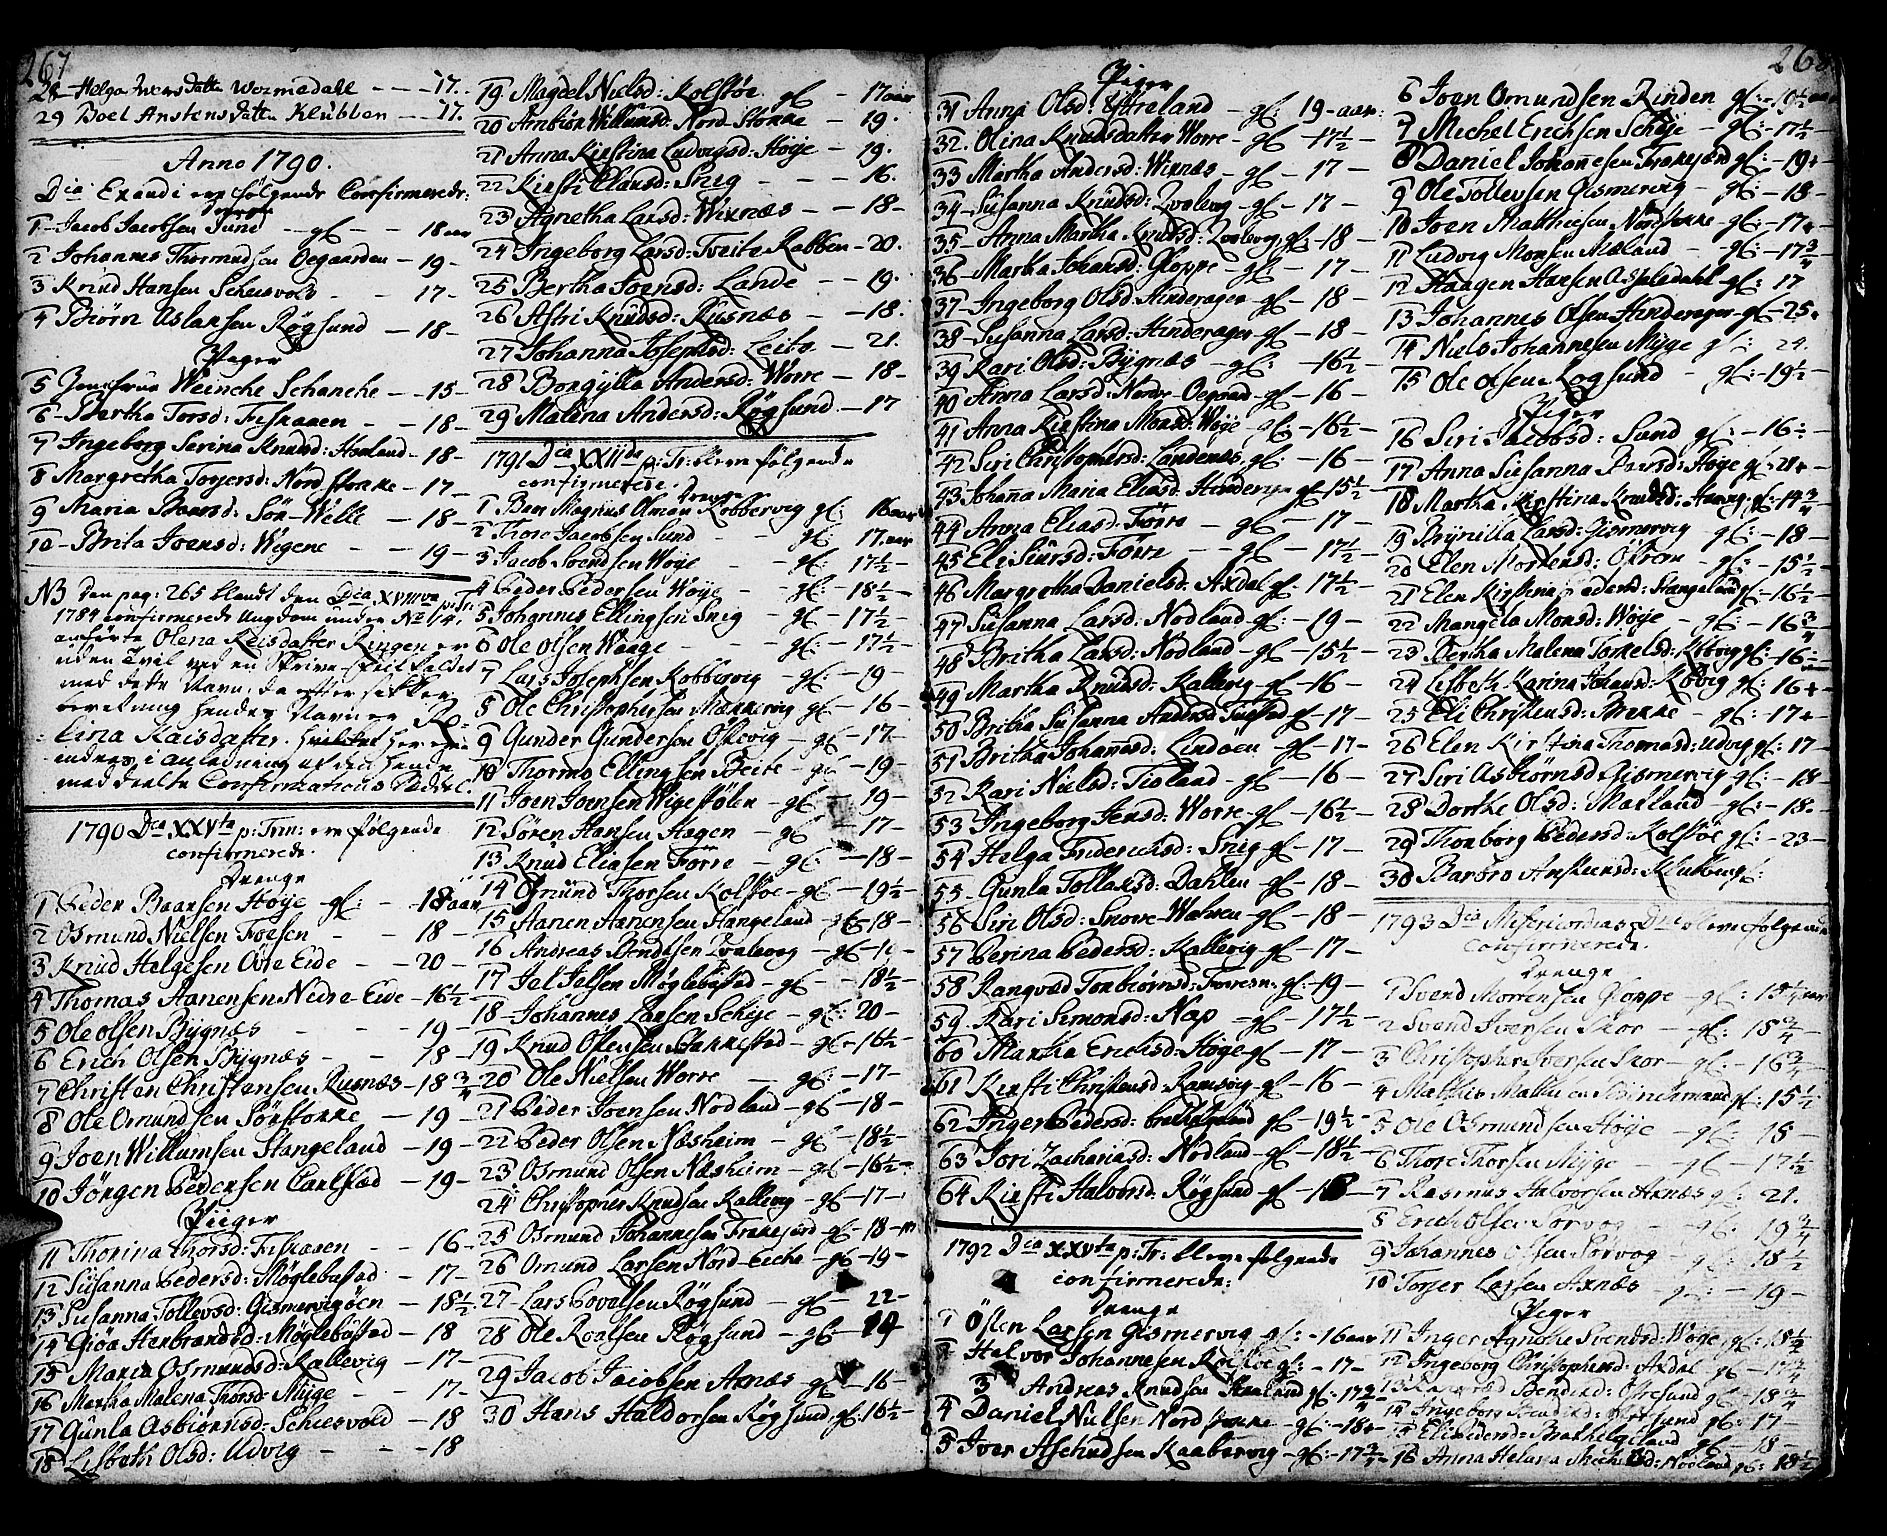 267
28 Helga Iversdatter Wormedahl - - 17.
29 Boel Anstensdatter Klubben - - 17.
Anno 1790.
Dca Exaudi ere følgende Confirmerede:
Drenge
1 Jacob Jacobsen Sund - gl - - 18 aar
2 Johannes Thormundsen Oegaarden - 19 -
3 Knud Hansen Scheisvold - - 17 -
4 Biørn Aslaksen Røgsund - 18 -
Piger
5 Jomfrue Weinche Schanche - - 15 -
6 Bertha Torsd: Fiskaaen - - 18 -
7 Ingeborg Serina Knudsd: Hauland - 18 -
8 Margretha Torjersd: Nordstokke - 17 -
9 Maria Baarsd: Sør-Welle - 18 -
10 Brita Ivensd: Wigene - - 19 -
NB Den pag: 265 blandt den Dca XVIIIva p: Tr:
1784 confirmerede Ungdom under No 14.
anførte Olena Reisdatter Ringen er
uden Tvil ved en Skrive-Feil kaldet
med dette Navn, da efter sikker
beretning hendes Navn er Ro-
lina Raisdatter.
med deelte Confirmations Seddel.
1790 Dca XXVta p: Trin: ere følgende
confirmerede.
Drenge
1 Peder Baarsen Høje - gl: - - 18 aar
2 Osmund Nielsen Foesen - - 18 -
3 Knud Helgesen Ovre Eide - - 20 -
4 Thomas Aanensen Nedre-Eide - 16½ -
5 Ole Olsen Bygnæs - - - 19 -
6 Erich Olsen Bygnæs - - - 18 -
7 Christen Christensen Rusnæs - 18¾
8 Ole Omundsen Sørstokke - 19 -
9 Joen Willumsen Stangeland - 19 -
10 Jørgen Pedersen Carlstad - 19 -
Piiger
11 Thorina Thorsd: Fiskaaen - 16 -
12 Susanna Pedersd: Møglebustad - 17 -
13 Susanna Tollevsd: Gismervigøen - 18½ -
14 Giøa Henbrandsd: Møglebustad - 18
15 Maria Osmundsd: Kallevig - 17 -
16 Martha Malena Thorsd: Myge - - 17 -
17 Gunla Asbiørnsd: Schiesvold - 18
18 Lisbeth Olsd: Udvig - - - 18
19 Magdel Nielsd: Kolstøe gl - 17 aar
20 Anbiør Willumsd: Nord Stokke - 19.
21 Anna Kirstina Ludvigsd: Høije - 19.
22 Kirsti Elansd: Sneg - - - 16.
23 Agnetha Larsd: Wixnæs - - 18 -
24 Ingeborg Larsd: Tveite Rabben - 20.
25 Bertha Ivensd: Lande - 19.
26 Astri Knudsd: Rusnæs - - 18.
27 Johanna Josephsd: Leite - 21.
28 Borgylla Andersd: Worre - 18 -
29 Malena Andersd: Røgsund - 17
1791 Dca XXIIda p: Tr: bleve følgende
confirmerede.
Drenge
1 Ban Magnus Olman Kobbervig gl: 16 aar
2 Thore Jacobsen Sund - - gl: 17. aar
3 Jacob Svendsen Woye - gl: 17½ -
4 Peder Pedersen Woye - gl: - 18½ -
5 Johannes Ellingsen Sneg - gl - 17½ -
6 Ole Olsen Waage - - gl: - 17½ -
7 Lars Josephsen Kobbervig - gl: - 19 -
8 Ole Christophersen Mækkevig - gl - 16 -
9 Gunder Gundersen Østevig - gl - 17 -
10 Thormo Ellingsen Beite - gl - 19 -
11 Joen Joensen Wigestølen - gl - 19 -
12 Søren Hansen Hagen - gl - 17 -
13 Knud Eliasen Førre - gl: - 18 -
14 Osmund Thorsen Kolstøe - gl - 19½ -
15 Aanen Aanensen Stangeland - gl - 18 -
16 Andreas Bendtsen Qvalevog - gl -
17 Jel Jelsen Møglebustad - gl - 18½ -
18 Johannes Larsen Scheje - gl: 20 -
19 Knud Ostensen Bakkestad - gl - 16½ -
20 Ole Nielsen Worre - gl: - 17 -
21 Peder Joensen Nodland - gl - 18 -
22 Peder Olsen Næsheim - gl - 18½ -
23 Osmund Olsen Næsheim - gl - 16½ -
24 Christopher Knudsen Kallevig - gl - 17 -
25 Osmund Johannesen Frakejærd - gl - 18 -
26 Omund Larsen Nord-Eiche - gl - 19 -
27 Lars Povelsen Røgsund - gl - 22 -
28 Ole Roalsen Røgsund - gl - 19
29 Jacob Jacobsen Axnæs - gl - 16 -
30 Hans Haldorsen Røgsund, gl: 16½ -
268
Piger
31 Anna Olsd: Østreland - gl: 19 - aar:
32. Olina Knudsdatter Worre - gl - 17½
33 Martha Andersd: Wixnæs - gl - 17 -
34 Susanna Knudsd: Qvalevog - gl - 17 -
35 Anna Martha Knudsd: Qvalevog gl - 18 -
36 Martha Johansd: Gloppe - gl - 17 -
37 Ingeborg Olsd: Hinderager - gl - 18 -
38 Susanna Larsd: Hinderager - gl - 18 -
39 Kari Olsd: Bygnæs - gl: - 16½
40 Anna Larsd: Nedre Oegaard - gl - 16
41 Anna Kirstina Monsd: Woye - gl - 16½ -
42 Siri Christophersd: Landenæs, gl - 16 -
43 Johana Maria Eliasd: Hinderager gl - 15½ -
44 Anna Eliasd: Førre - gl - 17 -
45 Eli Siursd: Førre - - gl - 17½ -
46 Margretha Danielsd: Axdal gl: - 17½ -
47 Susanna Larsd: Nodland - gl: - 19 -
48 Britha Larsd: Nodland - gl - 15½ -
49 Martha Knudsd: Kallevig - gl - 16 -
50 Britha Susanna Andersd: gl - 17 -
51 Britha Johannsd: Lindoen - gl - 17 -
52 Kari Nielsd: Tioland - gl - 16 -
53 Ingeborg Jensd: Worre - gl - 16½ -
54 Helga Friderichsd: Sneg - gl - 17 -
55 Gunla Tollaksd: Dahlen - gl - 18 -
56 Siri Olsd: Snorre-Wahren - gl - 18 -
57 Berina Pedersd: Kallevig - gl - 17 -
58 Rangvæd Tonbiørnsd: gl - 19 -
59. Kari Simonsd: Nap - gl - 17½ -
60 Martha Erichsd: Høge - gl - 17 -
61 Kirsti Christensd: Ramsvig - gl - 16 -
62 Inger Pedersd: gl - 19½ -
63 Siri Zachariasd: Nodland - gl - 18½ -
64 Kirsti Halvorsd: Røgsund - gl - 18 -
1792 Dca XXVta p: Tr: bleve følgende
confirmerede:
Drenge
1 Østen Larsen Gismervig - gl: - 16 aar
2 Halvor Johannesen Kolstøe gl: - 17 -
3 Andreas Knudsen Haaland gl: 17¾ -
4 Daniel Nielsen Nordstokke - gl: - 18 -
5 Iver Aschudsen Kaabervig - gl: - 17¾ -
6 Joen Omundsen Rinden gl: - 19½ aar
7 Michel Erichsen Scheje - gl: - 17½ -
8 Daniel Johannesen Frakejærd gl: - 19 -
9 Ole Tollevsen Gismervig - gl: - 18 -
10 Joen Matthiesen Nordstokke - gl: - 17 -
11 Ludvig Monsen Mæland - gl: - 17¾
12 Haagen Hansen Aspeledahl - gl: 17
13 Johannes Olsen Hinderager - gl - 25.
14 Niels Johannesen Myge gl: 24.
15 Ole Olsen Røgsund - gl: - 19½ -
Piger
16 Siri Jacobsd: Sund gl: - 16 -
17 Anna Susanna Iversd: Høge gl: 21 -
18 Martha Kirstina Knudsd: gl: - 14¾
19 Brynilla Larsd: Gismervig - gl: - 18 -
20 Elen Mortensd: Østrem - gl: - 15½ -
21 Elen Kirstina Pedersd: Stangeland gl: - 16½ -
22 Mangela Monsd: Woye - gl: - 16¾
23 Bertha Malena Torkelsd: gl: - 16 -
24 Lisbeth Karina Johansd: gl: 16 -
25 Eli Christensd: Brekke - gl: - 17 -
26 Elen Kirstina Thomasd: Udvig gl: - 17 -
27 Siri Asbiørnsd: Gismervig gl: - 18 -
28 Dorthe Olsd: Mæeland - gl: - 18 -
29 Thonborg Pedersd: Kolstøe gl: - 23 -
30 Barbro Anstensd: Klubben gl:
1793 Dca Misericordias Dni bleve følgende
confirmerede.
Drenge
1 Svend Mortensen Gloppe - gl: - 15¼ aar
2 Svend Iversen Skor - gl: 18¾
3 Christopher Iversen Skor - gl: - 16¾
4 Mathis gl: 15½
5 Ole Osmundsen Høije - gl: 18 -
6 Thore Thorsen Myge - - gl: - 17½
7 Rasmus Halvorsen Axnæs gl: 21.
8 Erich Olsen Sørvog - gl: 19¾
9 Johannes Olsen Sørvog - gl: 18½
10 Torjer Larsen Axnæs - gl: - 19 -
Piger
11 Inger Agnethe Svendsd: Woye, gl: 18½
12 Ingeborg Christophersd: Axdal gl - 17¾
13 Bendixd: Østresund gl: 18¾
14 Ingeborg gl: - 17 -
15 Eli Pedersd: gl - 18 -
16 Anna Helena Michelsd: Nodland gl: 18½